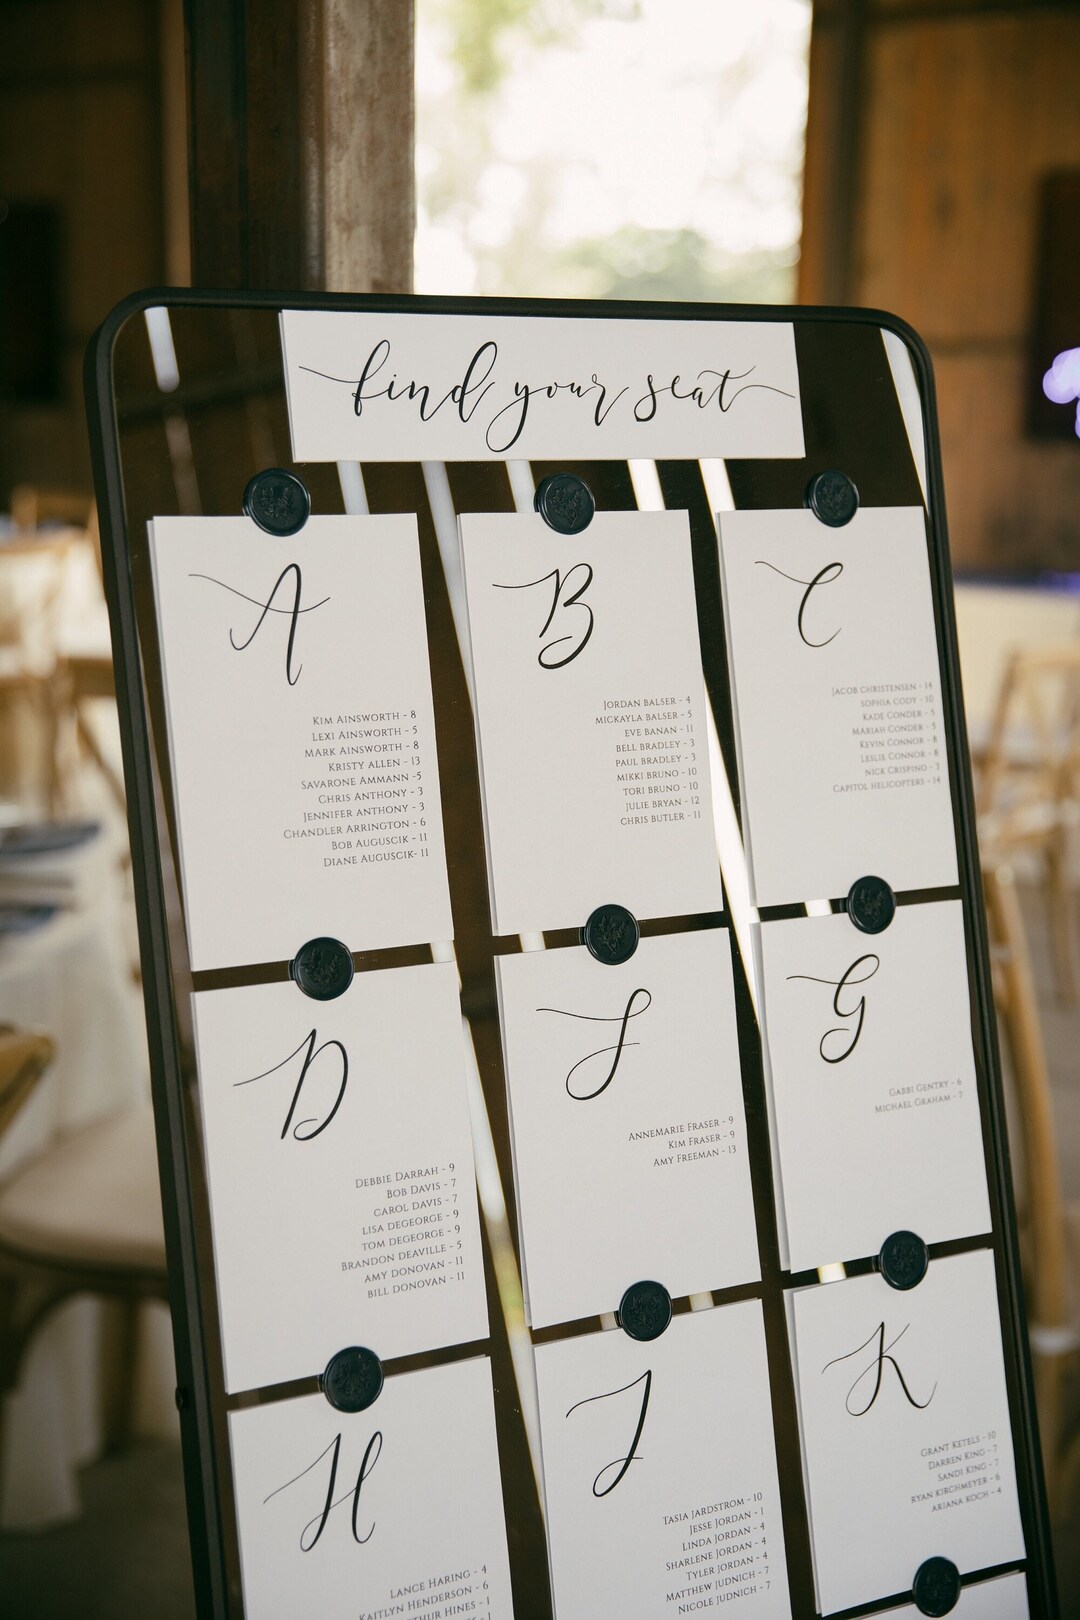 find your seat
A
Kim Ainsworth - 8
Lexi Ainsworth - 5
Mark Ainsworth - 8
Kristy Allen - 13
Savarone Ammann -5
Chris Anthony - 3
Jennifer Anthony - 3
Chandler Arrington - 6
Bob Auguscik - 11
Diane Auguscik- 11
B
Jordan Balser - 4
Mickayla Balser - 5
Eve Banan - 11
Bell Bradley - 3
Paul Bradley - 3
Mikki Bruno - 10
Tori Bruno - 10
Julie Bryan - 12
Chris Butler - 11
C
Jacob Christensen - 14
Sophia Cody - 10
Kade Conder - 5
Mariah Conder - 5
Kevin Connor - 8
Leslie Connor - 8
Nick Crispino - 3
Capitol Helicopters - 14
D
Debbie Darrah - 9
Bob Davis - 7
Carol Davis - 7
Lisa DeGeorge - 9
Tom DeGeorge - 9
Brandon Deaville - 5
Amy Donovan - 11
Bill Donovan - 11
F
AnneMarie Fraser - 9
Kim Fraser - 9
Amy Freeman - 13
G
Gabbi Gentry - 6
Michael Graham - 7
H
Lance Haring - 4
Kaitlyn Henderson - 6
Hines - 1
J
Tasia Jardstrom - 10
Jesse Jordan - 1
Linda Jordan - 4
Sharlene Jordan - 4
Tyler Jordan - 4
Matthew Judnich - 7
Nicole Judnich - 7
K
Grant Ketels - 10
Darren King - 7
Sandi King - 7
Ryan Kirchmeyer - 6
Ariana Koch - 4